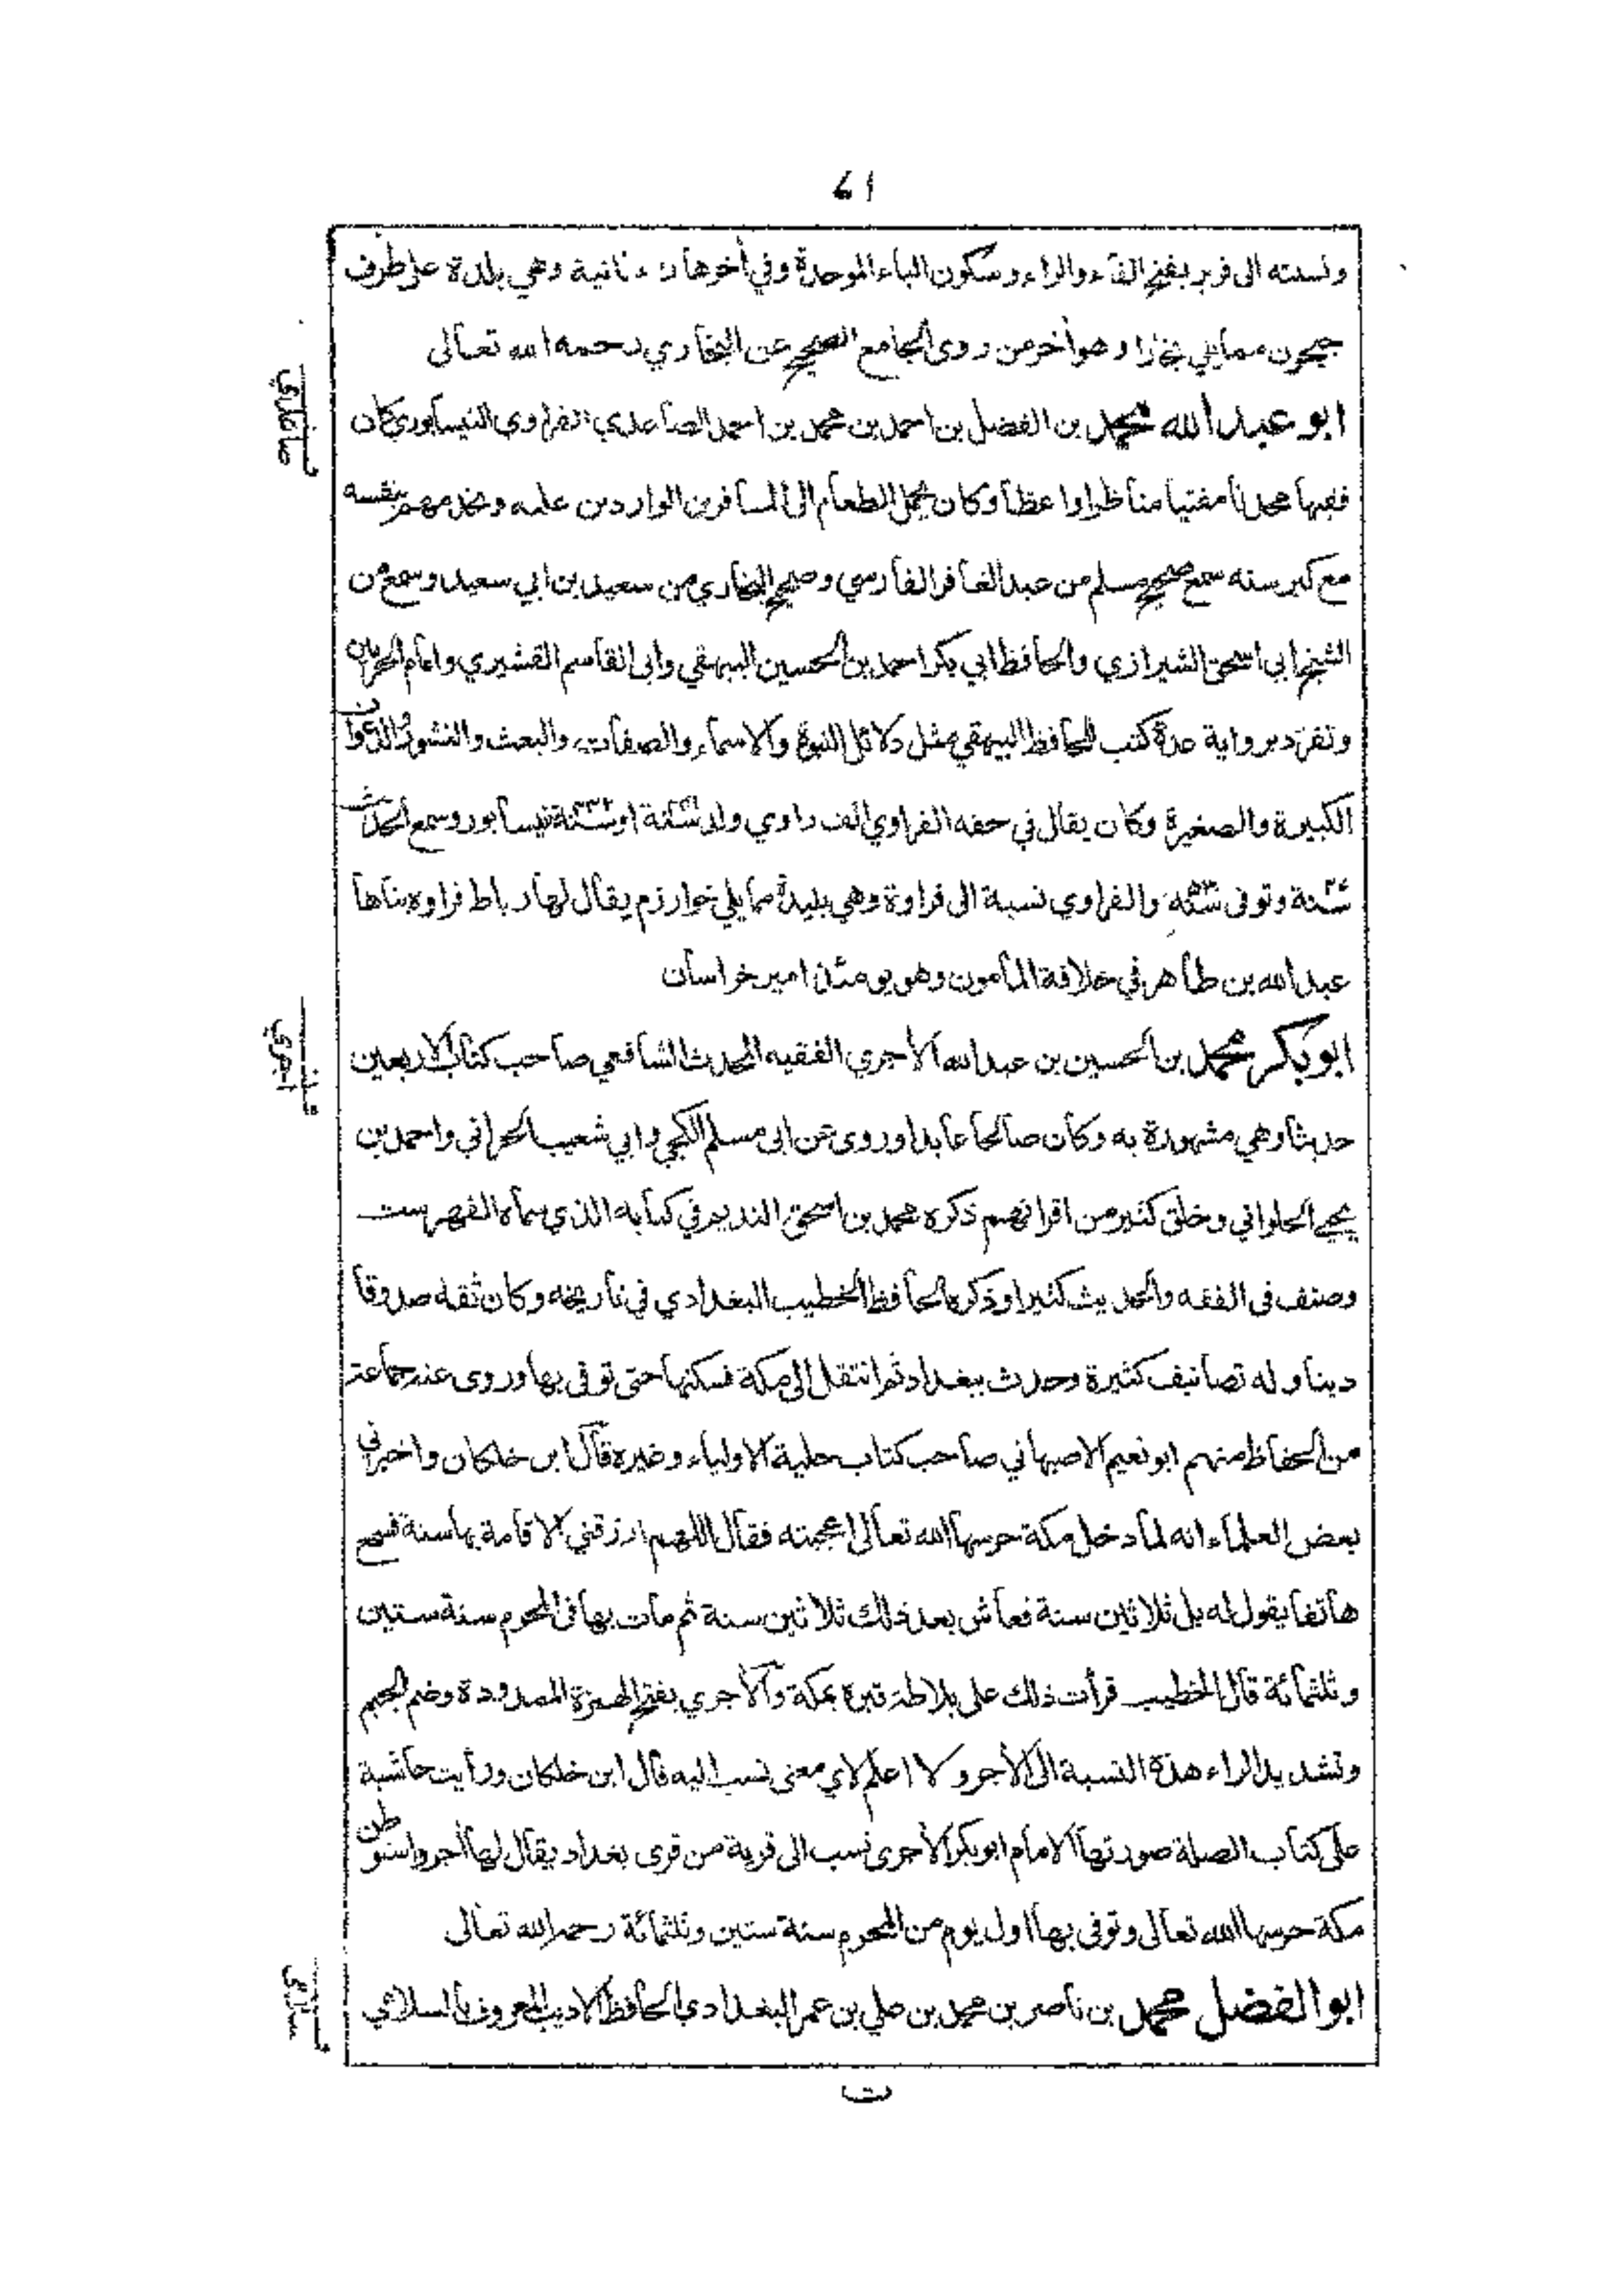 ٤١
ونسبته الى فربر بفتح الفاء والراء وسكون الباء الموحدة وفي أخرها راء ثانية وهي بلدة على طرف
جيحون مما يلي بخارا وهو أخر من روى الجامع الصحيح عن البخاري رحمه الله تعالى
ابو عبد الله محمد بن الفضل بن احمد بن محمد بن احمد الصاعدي الفراوي النيسابوري كان
صاعدي
فقيها محدثا مفتيا مناظرا واعظا وكان يحمل الطعام الى المسافرين الواردين عليه ويخدمهم بنفسه
مع كبر سنه سمع صحيح مسلم من عبد الغافر الفارسي وصحيح البخاري من سعيد بن ابي سعيد وسمع من
الشيخ ابي اسحق الشيرازي والحافظ ابي بكر احمد بن الحسين البيهقي وابى القاسم القشيري وامام الحرمين
وتفرد برواية عدة كتب للحافظ البيهقي مثل دلائل النبوة والاسماء والصفات والبعث والنشور والدعوات
الكبيرة والصغيرة وكان يقال في حقه الفراوي الف راوي ولد سنة او سنة نيسابور وسمع الحديث
سنة وتوفى سنة والفراوي نسبة الى فراوة وهي بليدة مما يلي خوارزم يقال لها رباط فراوه بناها
عبد الله بن طاهر في خلافة المأمون وهو يومئذ امير خراسان
ابو بكر محمد بن الحسين بن عبد الله الأجري الفقيه المحدث الشافعي صاحب كتاب الاربعين
اجري
حديثا وهي مشهورة به وكان صالحا عابدا وروى عن ابى مسلم الكجي وابي شعيب الحراني واحمد بن
يحيى الحلواني وخلق كثير من اقرانهم ذكره محمد بن اسحق النديم في كتابه الذي سماه الفهرست
وصنف فى الفقه والحديث كثيرا وذكره الحافظ الخطيب البغدادي في تاريخه وكان ثقة صدوقا
دينا وله تصانيف كثيرة وحدث ببغداد ثم انتقل الى مكة فسكنها حتى توفى بها وروى عنه جماعة
من الحفاظ منهم ابو نعيم الاصبهاني صاحب كتاب حلية الاولياء وغيره قال ابن خلكان واخبرني
بعض العلماء انه لما دخل مكة حرسها الله تعالى اعجبته فقال اللهم ارزقني الاقامة بها سنة فسمع
هاتفا يقول له بل ثلاثين سنة فعاش بعد ذلك ثلاثين سنة ثم مات بها فى المحرم سنة ستين
وثلثمائة قال الخطيب قرأت ذلك على بلاطة قبره بمكة والأجري بفتح الهمزة الممدودة وضم الجيم
وتشديد الراء هذه النسبة الى الأجر ولا اعلم لاي معنى نسب اليه قال ابن خلكان ورأيت حاشية
على كتاب الصلة صورتها الامام ابو بكر الأجرى نسب الى قرية من قرى بغداد يقال لها أجر واستوطن
مكة حرسها الله تعالى وتوفى بها اول يوم من المحرم سنة ستين وثلثمائة رحمه الله تعالى
ابو الفضل محمد بن ناصر بن محمد بن علي بن عمر البغدادي الحافظ الاديب المعروف بالسلامي
سلامي
ت